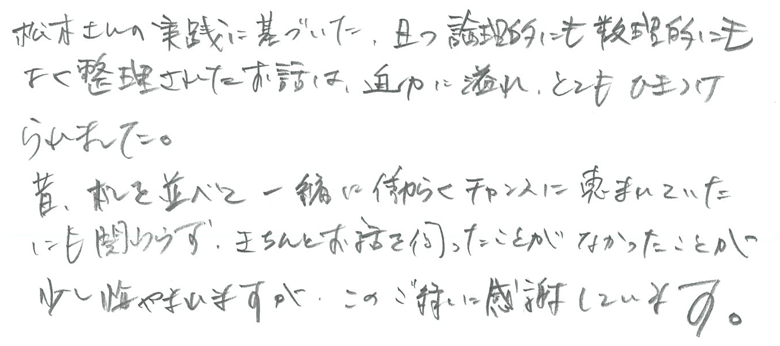 松本さんの実践に基づいた、且つ論理的にも数理的にも
よく整理されたお話は、迫力に溢れ、とてもひきつけ
られました。
昔、机を並べて一緒に働らくチャンスに恵まれていた
にも関わらず、きちんとお話を伺ったことがなかったことが
少し悔やまれますが、このご縁に感謝しています。